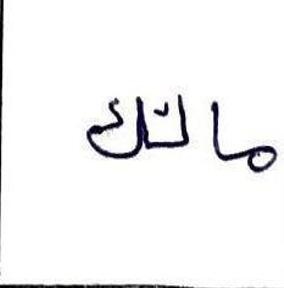 مالتك